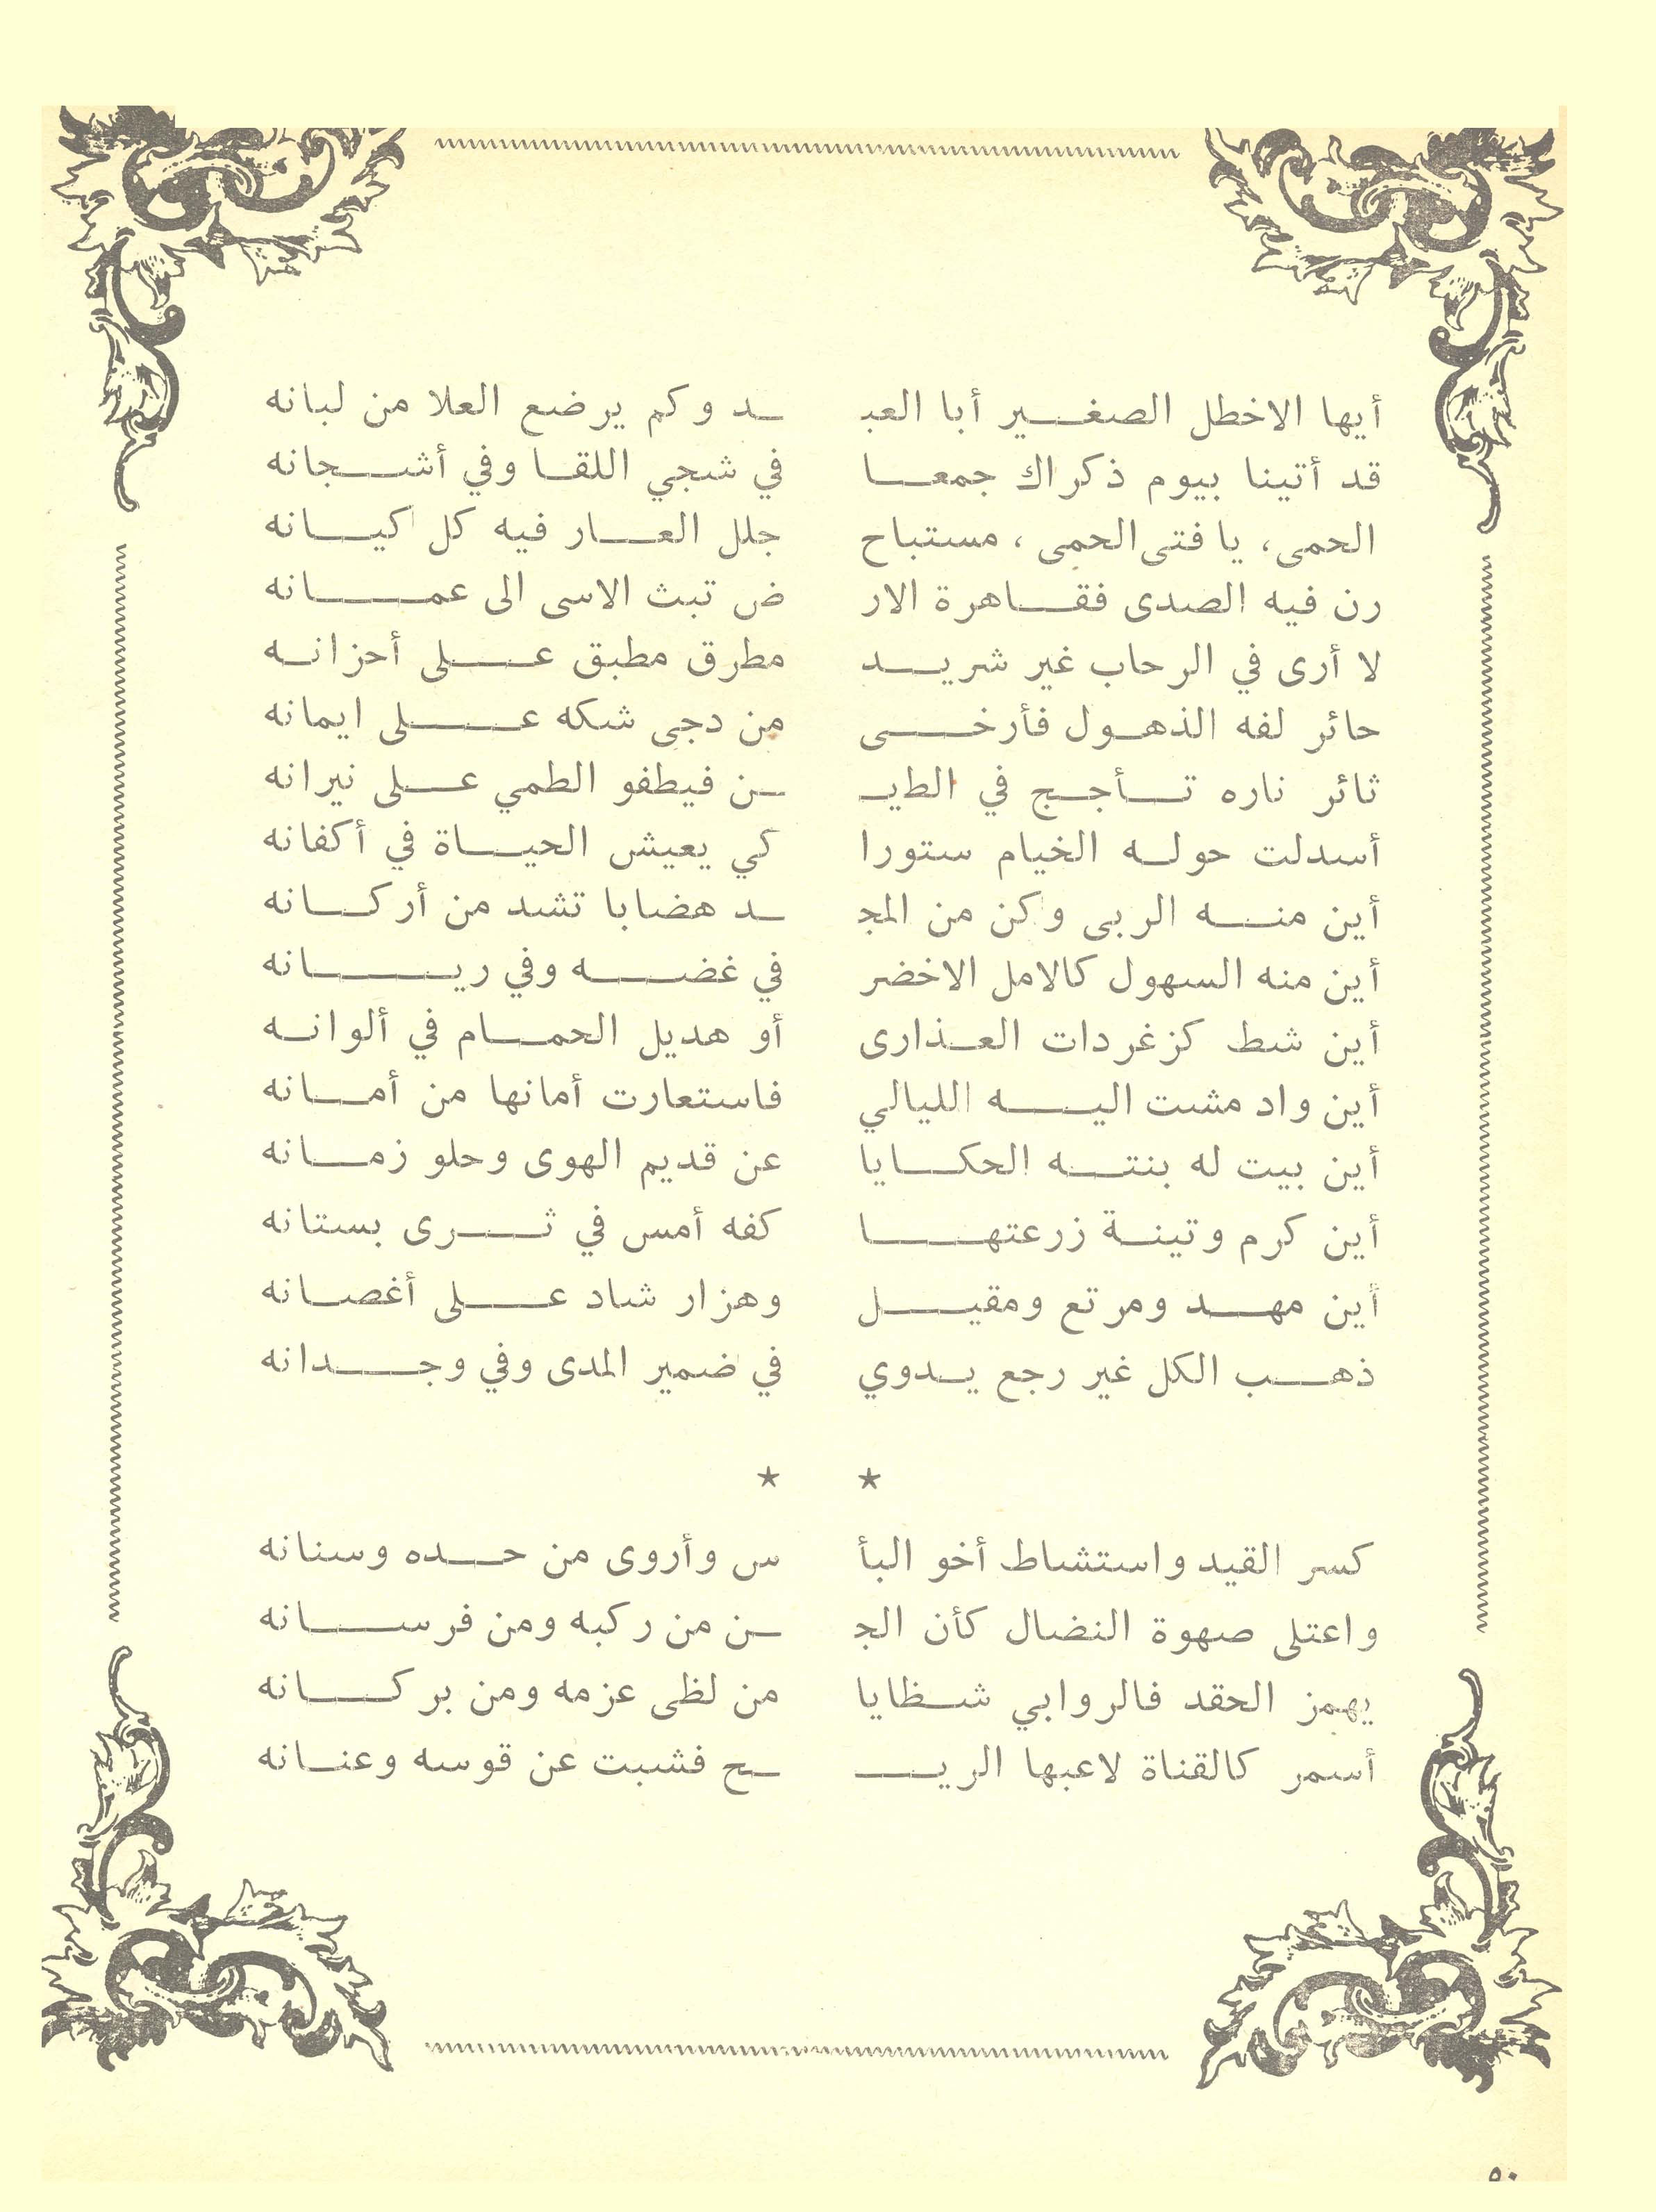 أيها الاخطل الصغير أبا العبـ ـد وكم يرضع العلا من لبانه
قد أتينا بيوم ذكراك جمعا في شجي اللقا وفي أشجانه
الحمى، يا فتى الحمى، مستباح جلل العار فيه كل كيانه
رن فيه الصدى فقاهرة الار ض تبث الاسى الى عمانه
لا أرى في الرحاب غير شريد مطرق مطبق على أحزانه
حائر لفه الذهول فأرخى من دجى شكه على ايمانه
ثائر ناره تأجج في الطيـ ـن فيطفو الطمي على نيرانه
أسدلت حوله الخيام ستورا كي يعيش الحياة في أكفانه
أين منه الربى وكن من المجـ ـد هضابا تشد من أركانه
أين منه السهول كالامل الاخضر في غضه وفي ريانه
أين شط كزغردات العذارى أو هديل الحمام في ألوانه
أين واد مشت اليه الليالي فاستعارت أمانها من أمانه
أين بيت له بنته الحكايا عن قديم الهوى وحلو زمانه
أين كرم وتينة زرعتها كفه أمس في ثرى بستانه
أين مهد ومرتع ومقيل وهزار شاد على أغصانه
ذهب الكل غير رجع يدوي في ضمير المدى وفي وجدانه
* *
كسر القيد واستشاط أخو البأ س وأروى من حده وسنانه
واعتلى صهوة النضال كأن الجـ ـن من ركبه ومن فرسانه
يهمز الحقد فالروابي شظايا من لظى عزمه ومن بركانه
أسمر كالقناة لاعبها الريـ ـح فشبت عن قوسه وعنانه
٥٠